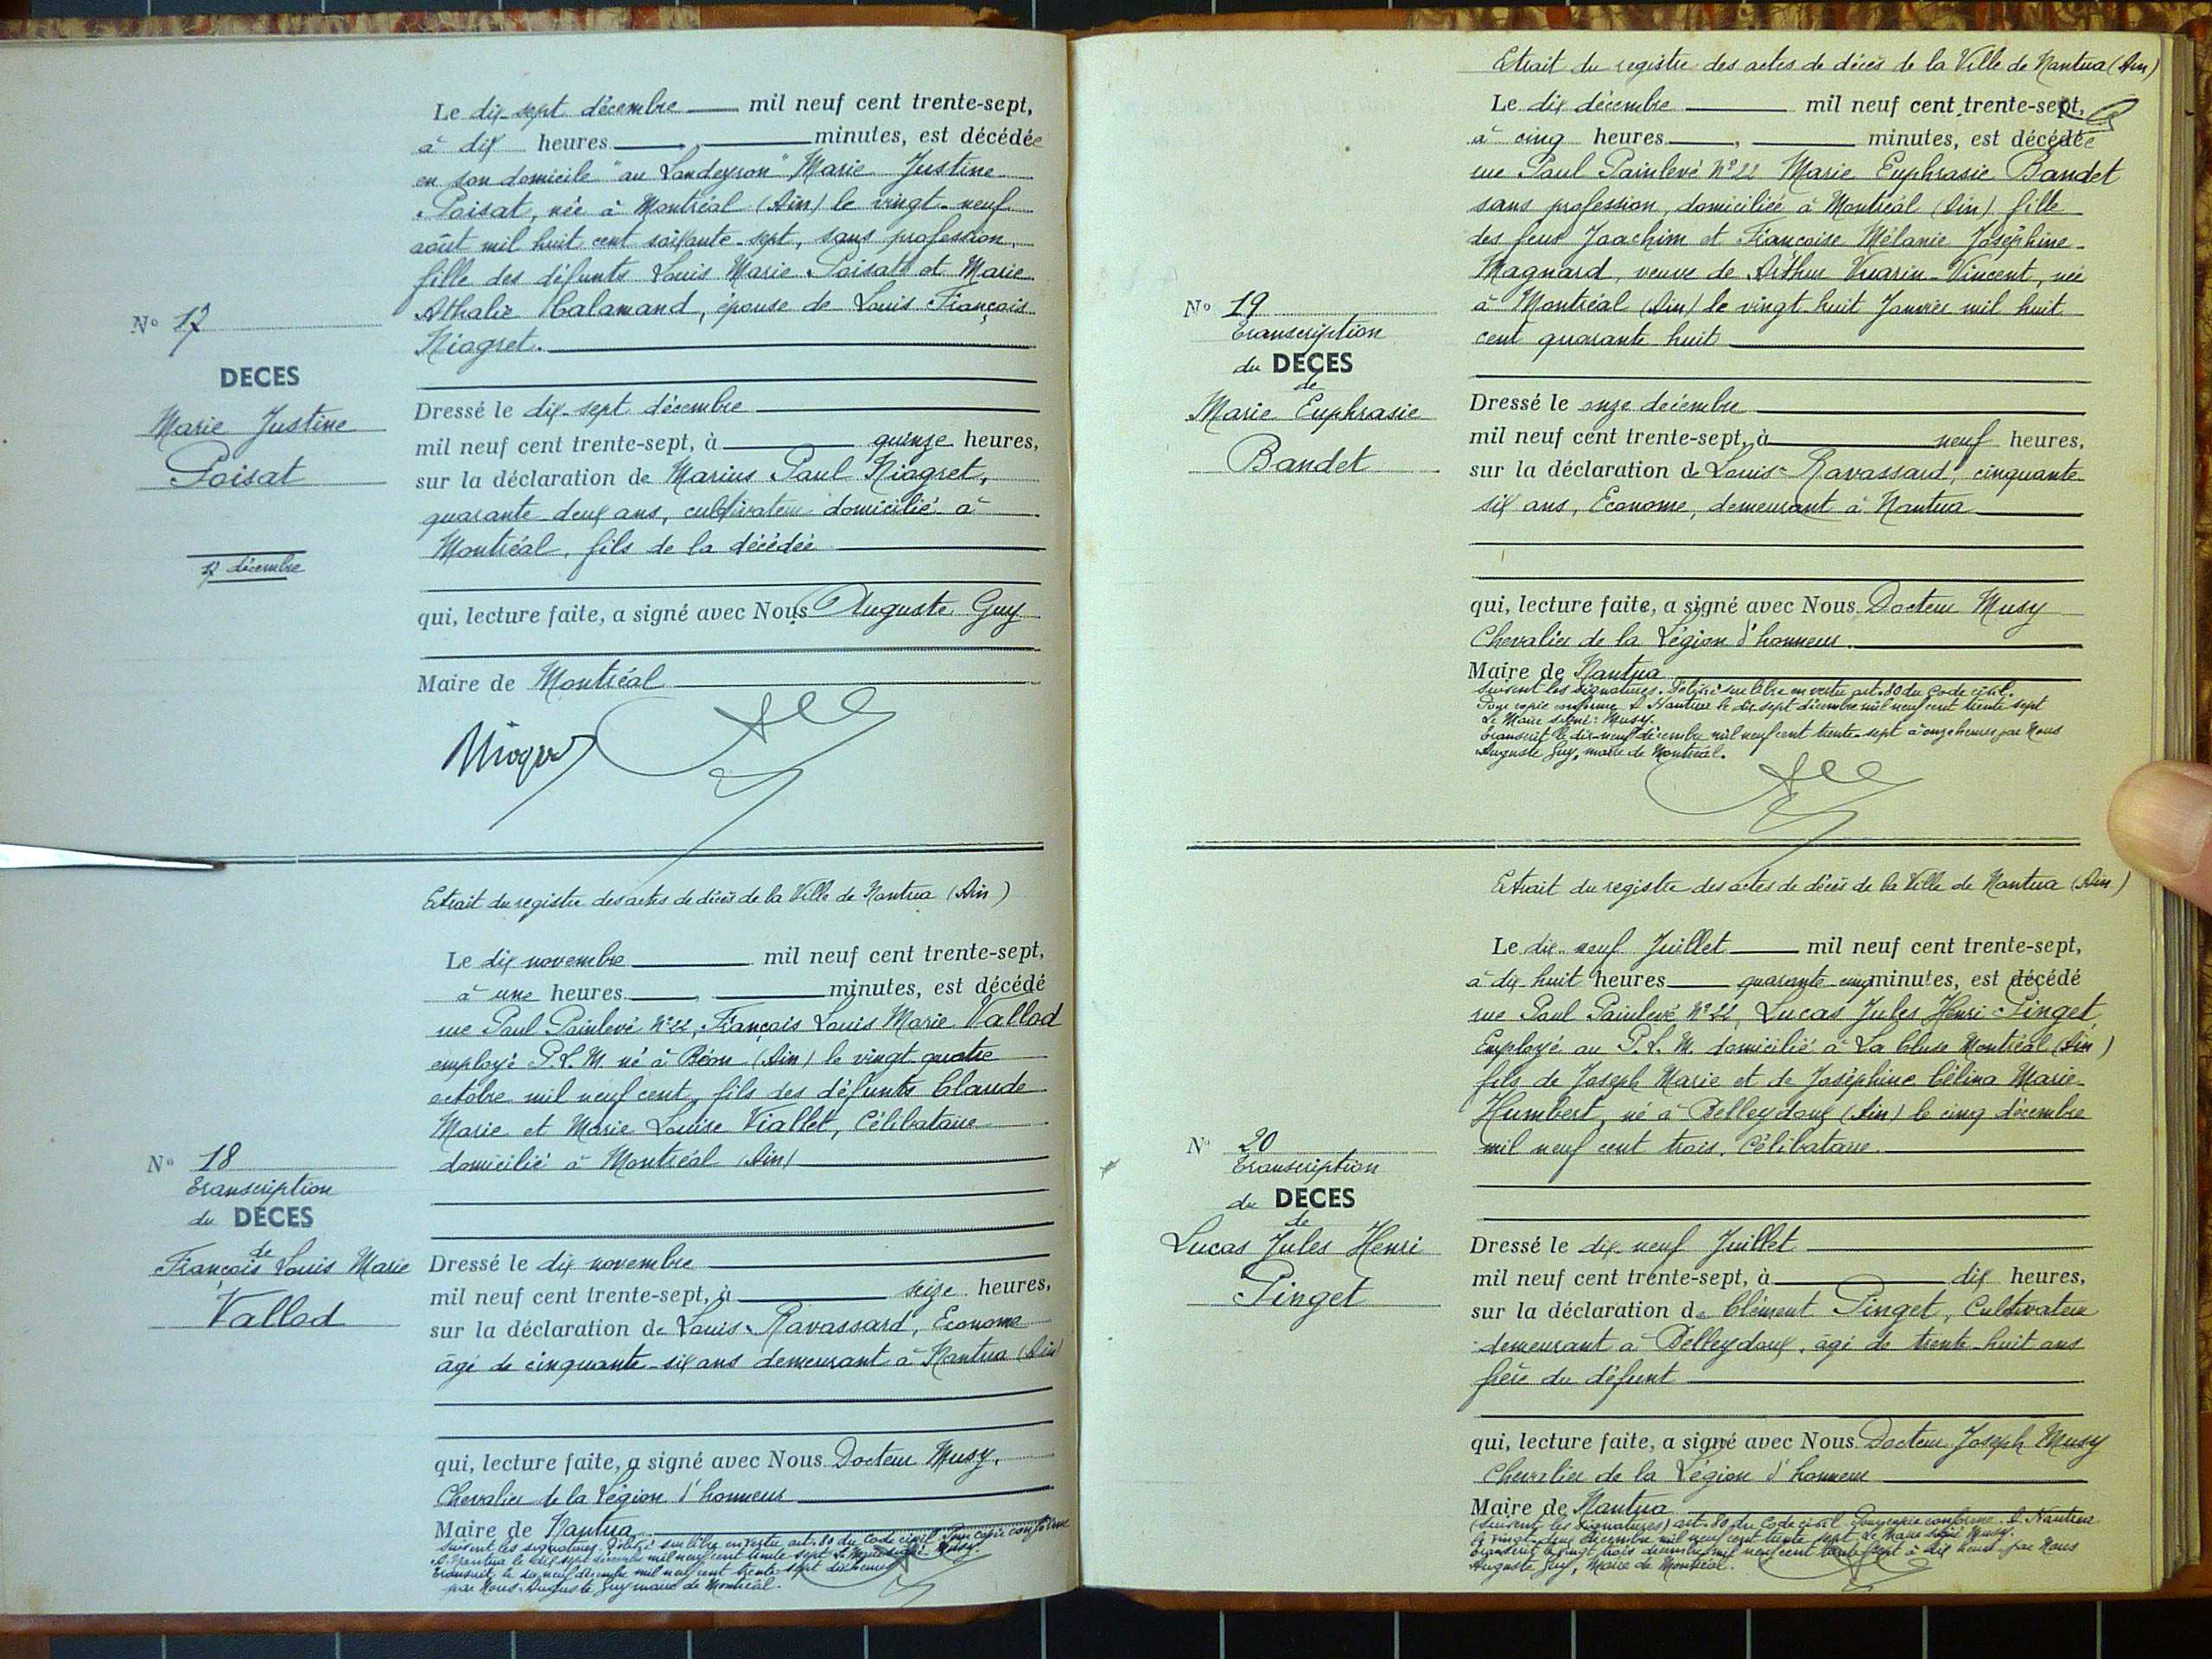 Le dix-sept décembre mil neuf cent trente-sept,
à dix heures, minutes, est décédée
en son domicile "au Landeyron" Marie Justine
Poisat, née à Montréal (Ain) le vingt-neuf
août mil huit cent soixante-sept, sans profession,
fille des défunts Louis Marie Poisat et Marie
Athalie Calamand, épouse de Louis François
Niogret.
No 17
DECES
Marie Justine
Poisat
17 décembre
Dressé le dix-sept décembre
mil neuf cent trente-sept, à quinze heures,
sur la déclaration de Marius Paul Niogret,
quarante-deux ans, cultivateur domicilié à
Montréal, fils de la décédée
qui, lecture faite, a signé avec Nous Auguste Guy
Maire de Montréal
Niogret
Extrait du registre des actes de décès de la Ville de Nantua (Ain)
Le dix novembre mil neuf cent trente-sept,
à une heures, minutes, est décédé
rue Paul Painlevé N°22, François Louis Marie Vallod
employé P.L.M. né à Béon (Ain) le vingt-quatre
octobre mil neuf cent, fils des défunts Claude
Marie et Marie Louise Viallet, Célibataire
domicilié à Montréal (Ain)
No 18
Transcription
du DÉCES
de
François Louis Marie
Vallod
Dressé le dix novembre
mil neuf cent trente-sept, à seize heures,
sur la déclaration de Louis Ravassard, Econome
âgé de cinquante-six ans demeurant à Nantua (Ain)
qui, lecture faite, a signé avec Nous Docteur Musy,
Chevalier de la Légion d'honneur
Maire de Nantua
Suivent les signatures. Délivré sur libre en vertu art. 80 du Code civil. Pour copie conforme
A Nantua le dix-sept décembre mil neuf cent trente-sept Le Maire signé: Musy.
Transcrit le dix-neuf décembre mil neuf cent trente-sept dix heures
par Nous Auguste Guy maire de Montréal.
Extrait du registre des actes de décès de la Ville de Nantua (Ain)
Le dix décembre mil neuf cent trente-sept,
à cinq heures, minutes, est décédée
rue Paul Painlevé N°22 Marie Euphrasie Bandet
sans profession, domiciliée à Montréal (Ain) fille
des feus Joachim et Françoise Mélanie Joséphine
Magnard, veuve de Arthur Vuarin-Vincent, née
à Montréal (Ain) le vingt huit Janvier mil huit
cent quarante huit
No 19
Transcription
du DECES
de
Marie Euphrasie
Bandet
Dressé le onze décembre
mil neuf cent trente-sept, à neuf heures,
sur la déclaration de Louis Ravassard, cinquante-
six ans, Econome, demeurant à Nantua
qui, lecture faite, a signé avec Nous Docteur Musy
Chevalier de la Légion d'honneur.
Maire de Nantua
Suivent les signatures. Délivré sur libre en vertu art. 80 du Code civil.
Pour copie conforme A Nantua le dix-sept décembre mil neuf cent trente sept
Le Maire signé: Musy.
Transcrit le dix-neuf décembre mil neuf cent trente-sept à onze heures par Nous
Auguste Guy, maire de Montréal.
Extrait du registre des actes de décès de la Ville de Nantua (Ain)
Le dix-neuf Juillet mil neuf cent trente-sept,
à dix huit heures quarante cinq minutes, est décédé
rue Paul Painlevé N°22, Lucas Jules Henri Pinget
Employé au P.L.M. domicilié à La Cluse Montréal (Ain)
fils de Joseph Marie et de Joséphine Célina Marie
Humbert, né à Belleydoux (Ain) le cinq décembre
mil neuf cent trois. Célibataire.
No 20
Transcription
du DECES
de
Lucas Jules Henri
Pinget
Dressé le dix-neuf Juillet
mil neuf cent trente-sept, à dix heures,
sur la déclaration de Clément Pinget, Cultivateur
demeurant à Belleydoux, âgé de trente-huit ans
frère du défunt
qui, lecture faite, a signé avec Nous Docteur Joseph Musy
Chevalier de la Légion d'honneur
Maire de Nantua
(Suivent les signatures) art. 80 du Code civil Pour copie conforme. A Nantua
le vingt-deux décembre mil neuf cent trente sept Le Maire signé Musy.
Transcrit le vingt trois décembre mil neuf cent trente sept à dix heures par Nous
Auguste Guy, Maire de Montréal.